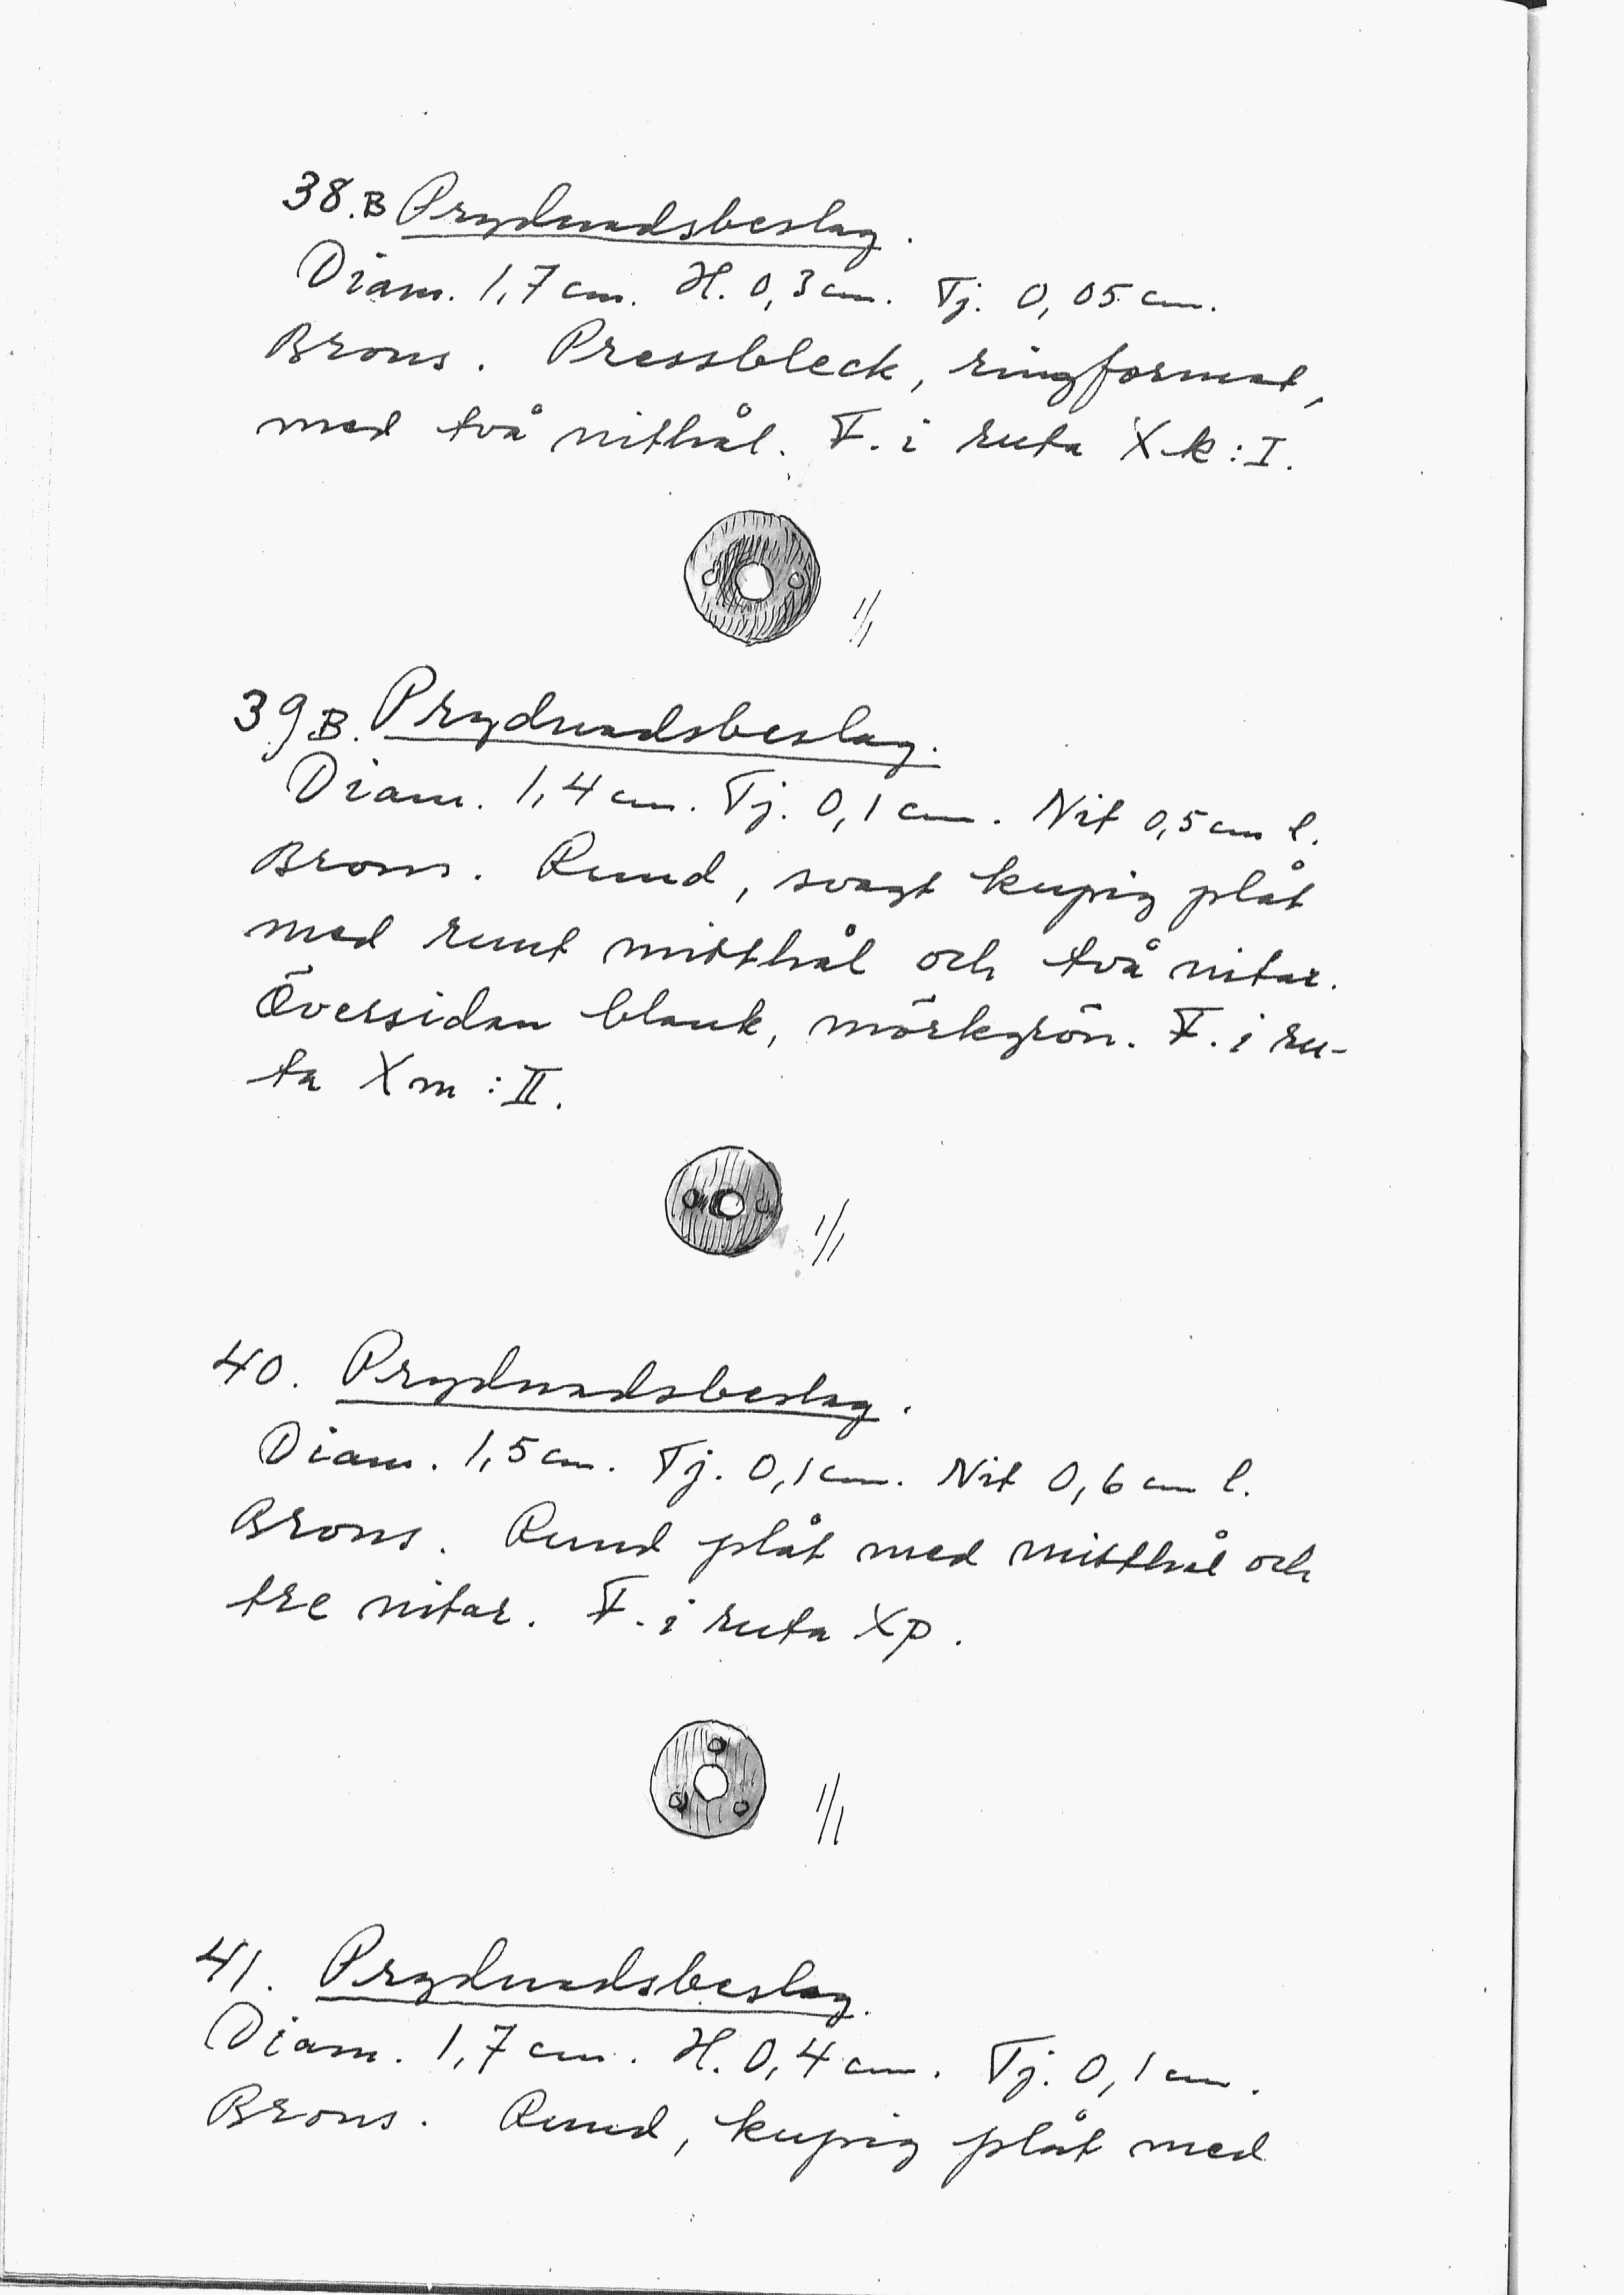 38.B Prydnadsbeslag.
Diam. 1,7 cm. H. 0,3 cm. Tj. 0,05 cm.
Brons. Pressbleck, ringformat,
med två nithål. F. i ruta Xk:I.
1/1
39B. Prydnadsbeslag.
Diam. 1,4 cm. Tj. 0,1 cm. Nit 0,5 cm l.
Brons. Rund, svagt kupig plåt
med runt mitthål och två nitar.
Översidan blank, mörkgrön. F. i ru-
ta Xm:II.
1/1
40. Prydnadsbeslag.
Diam. 1,5 cm. Tj. 0,1 cm. Nit 0,6 cm l.
Brons. Rund plåt med mitthål och
tre nitar. F. i ruta Xp.
1/1
41. Prydnadsbeslag.
Diam. 1,7 cm. H. 0,4 cm. Tj. 0,1 cm.
Brons. Rund, kupig plåt med